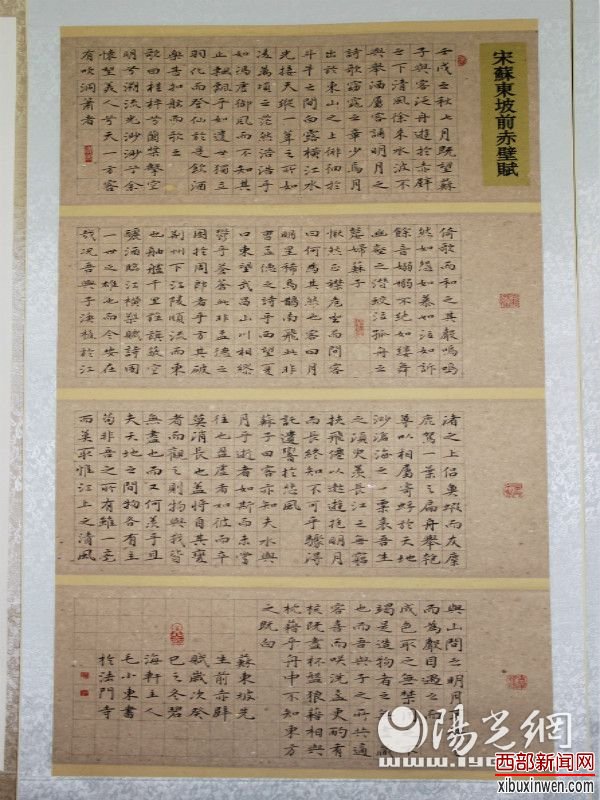 宋蘇東坡前赤壁賦
壬戌之秋七月既望蘇
子與客泛舟遊於赤壁
之下清風徐來水波不
興舉酒屬客誦明月之
詩歌窈窕之章少焉月
出於東山之上徘徊於
斗牛之間白露橫江水
光接天縱一葦之所如
凌萬頃之茫然浩浩乎
如馮虛御風而不知其
止飄飄乎如遺世獨立
羽化而登仙於是飲酒
樂甚扣舷而歌之
歌曰桂棹兮蘭槳擊空
明兮溯流光渺渺兮余
懷望美人兮天一方客
有吹洞簫者
倚歌而和之其聲嗚嗚
然如怨如慕如泣如訴
餘音嫋嫋不絕如縷舞
幽壑之潛蛟泣孤舟之
嫠婦蘇子
愀然正襟危坐而問客
曰何為其然也客曰月
明星稀烏鵲南飛此非
曹孟德之詩乎西望夏
口東望武昌山川相繆
鬱乎蒼蒼此非孟德之
困於周郎者乎方其破
荊州下江陵順流而東
也舳艫千里旌旗蔽空
釃酒臨江橫槊賦詩固
一世之雄也而今安在
哉況吾與子漁樵於江
渚之上侶魚蝦而友麋
鹿駕一葉之扁舟舉匏
尊以相屬寄蜉於天地
渺滄海之一粟哀吾生
之須臾羨長江之無窮
挾飛僊以遨遊抱明月
而長終知不可乎驟得
託遺響於悲風
蘇子曰客亦知夫水與
月乎逝者如斯而未嘗
往也盈虛者如彼而卒
莫消長也蓋將自其變
者而觀之則物與我皆
無盡也而又何羨乎且
夫天地之間物各有主
苟非吾之所有雖一毫
而莫取惟江上之清風
與山間之明月
而為聲目遇之而
成色取之無禁用
竭是造物者之無藏
也而吾與子之所共適
客喜而笑洗盞更酌肴
核既盡杯盤狼藉相與
枕藉乎舟中不知東方
之既白
蘇東坡先
生前赤壁
賦歲次癸
巳之冬碧
海軒主人
毛小東書
於法門寺
陽光網
西部新闻网
xibuxinwen.com